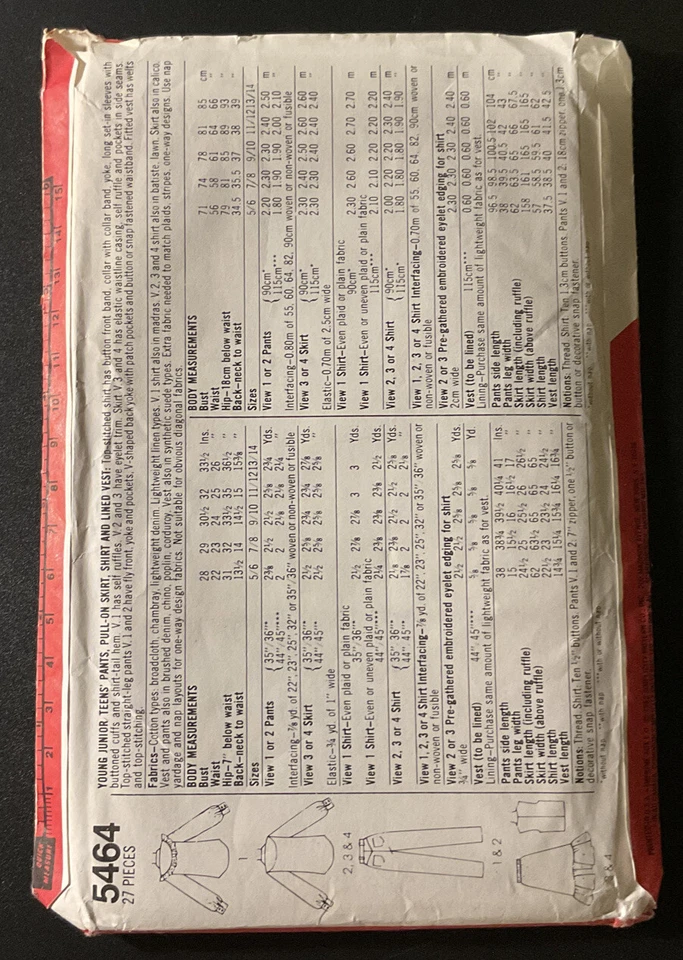 5464
27 PIECES
YOUNG JUNIOR TEENS' PANTS, PULL-ON SKIRT, SHIRT AND LINED VEST: Top-stitched shirt has button front band, collar with collar band, yoke, long set-in sleeves with
buttoned cuffs and shirt-tail hem. V.1 has self ruffles. V.2 and 3 have eyelet trim. Skirt V.3 and 4 has elastic waistline casing, self ruffle and pockets in side seams.
Top-stitched straight-leg pants V.1 and 2 have fly front, yoke and pockets. V-shaped back yoke with patch pockets and button or snap fastened waistband. Fitted vest has welts
and top-stitching.
Fabrics—Cotton types: broadcloth, chambray, lightweight denim. Lightweight linen types. V.1 shirt also in madras. V.2, 3 and 4 shirt also in batiste, lawn. Skirt also in calico.
Vest and pants also in brushed denim, chino, poplin, corduroy. Vest also in synthetic suede types. Extra fabric needed to match plaids, stripes, one-way designs. Use nap
yardage and nap layouts for one-way design fabrics. Not suitable for obvious diagonal fabrics.
BODY MEASUREMENTS
Bust 28 29 30½ 32 33½ Ins.
Waist 22 23 24 25 26 "
Hip—7" below waist 31 32 33½ 35 36½ "
Back—neck to waist 13½ 14 14½ 15 15⅜ "
Sizes 5/6 7/8 9/10 11/12 13/14
View 1 or 2 Pants
Interfacing—⅞ yd. of 22", 23", 25", 32" or 35", 36" woven or non-woven or fusible
View 3 or 4 Skirt
Elastic—¾ yd. of 1" wide
View 1 Shirt—Even plaid or plain fabric
View 1 Shirt—Even or uneven plaid or plain fabric
View 2, 3 or 4 Shirt
View 1, 2, 3 or 4 Shirt Interfacing—⅞ yd. of 22", 23", 25", 32" or 35", 36" woven or
non-woven or fusible
View 2 or 3 Pre-gathered embroidered eyelet edging for shirt
¾" wide 2½ 2½ 2⅝ 2⅝ 2⅝ Yds.
Vest (to be lined) 44", 45" ⅝ ⅝ ⅝ ⅝ ⅝ Yd.
Lining—Purchase same amount of lightweight fabric as for vest.
Pants side length 38 38¾ 39½ 40¼ 41 Ins.
Pants leg width 15 15½ 16 16½ 17 "
Skirt length (including ruffle) 24½ 25 25½ 26 26½ "
Skirt width (above ruffle)
Shirt length 22½ 23 23½ 24 24½ "
Vest length 14¾ 15¼ 15¾ 16¼ 16¾ "
Notions: Thread. Shirt: Ten ½" buttons. Pants V.1 and 2: 7" zipper, one ½" button or
decorative snap fastener.
BODY MEASUREMENTS
Bust 71 74 78 81 85 cm
Waist 56 58 61 64 66 "
Hip—18cm below waist 79 81 85 89 93 "
Back—neck to waist 34.5 35.5 37 38 39 "
Sizes 5/6 7/8 9/10 11/12 13/14
View 1 or 2 Pants 90cm* 2.20 2.30 2.30 2.40 2.50 m
115cm*** 1.80 1.90 1.90 2.00 2.10 "
Interfacing—0.80m of 55, 60, 64, 82, 90cm woven or non-woven or fusible
View 3 or 4 Skirt 90cm* 2.30 2.40 2.50 2.60 2.60 m
115cm* 2.30 2.30 2.40 2.40 2.40 "
Elastic—0.70m of 2.5cm wide
View 1 Shirt—Even plaid or plain fabric
90cm* 2.30 2.60 2.60 2.70 2.70 m
View 1 Shirt—Even or uneven plaid or plain fabric
115cm*** 2.10 2.10 2.20 2.20 2.20 m
View 2, 3 or 4 Shirt 90cm* 2.00 2.20 2.20 2.30 2.40 m
115cm* 1.80 1.80 1.80 1.90 1.90 "
View 1, 2, 3 or 4 Shirt Interfacing—0.70m of 55, 60, 64, 82, 90cm woven or
non-woven or fusible
View 2 or 3 Pre-gathered embroidered eyelet edging for shirt
2cm wide 2.30 2.30 2.30 2.40 2.40 m
Vest (to be lined) 115cm*** 0.60 0.60 0.60 0.60 0.60 m
Lining—Purchase same amount of lightweight fabric as for vest.
Pants side length 96.5 98.5 100.5 102 104 cm
Pants leg width 38 39.5 40.5 42 43 "
Skirt length (including ruffle) 62 63.5 65 66 67.5 "
Skirt width (above ruffle) 158 161 165 165 165 "
Shirt length 57 58.5 59.5 61 62 "
Vest length 37.5 38.5 40 41.5 42.5 "
Notions: Thread. Shirt: Ten 1.3cm buttons. Pants V.1 and 2: 18cm zipper, one 1.3cm
button or decorative snap fastener.
1
2, 3 & 4
1 & 2
QUICK
MEASURE
1 2 3 4 5 6 7 8 9 10 11 12 13 14 15